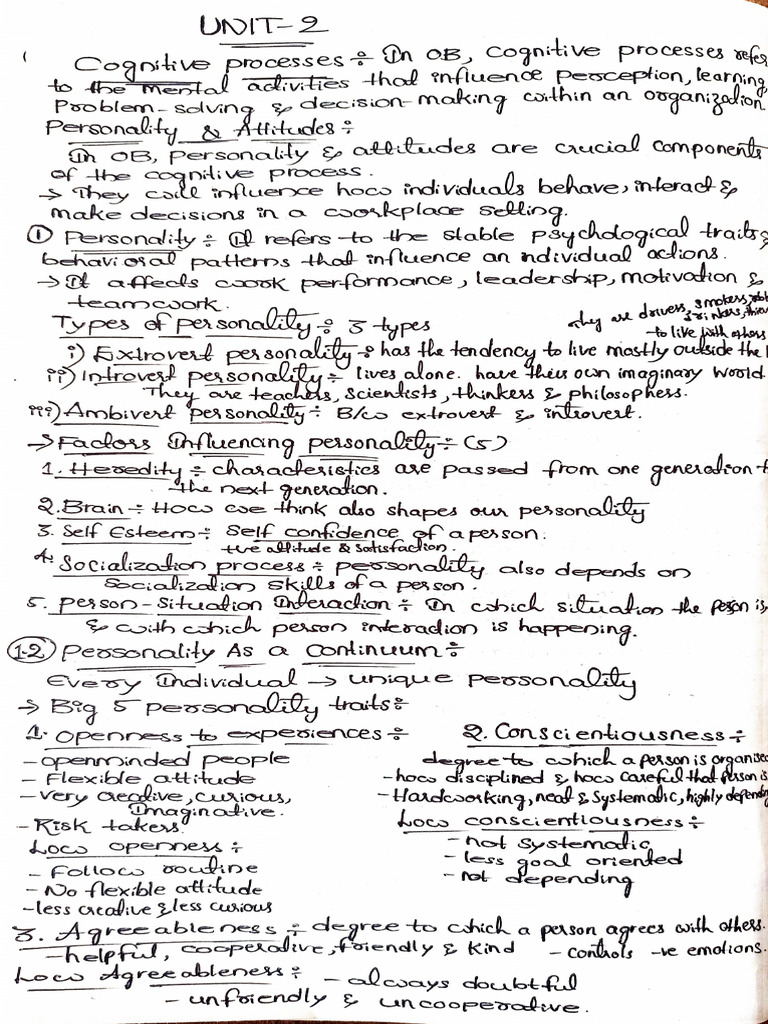 UNIT-2
Cognitive processes ÷ In OB, cognitive processes refer
to the mental activities that influence perception, learning,
Problem-solving & decision-making within an organization.
Personality & Attitudes ÷
In OB, personality & attitudes are crucial components
of the cognitive process.
→ They will influence how individuals behave, interact &
make decisions in a workplace setting.
① Personality ÷ It refers to the stable psychological traits &
behavioral patterns that influence an individual actions.
→ It affects work performance, leadership, motivation &
teamwork.
They are drivers, smokers,
drinkers,
Types of personality ÷ 3 types
to live with others
i) Extrovert personality ÷ has the tendency to live mostly outside the
ii) Introvert personality ÷ lives alone. have their own imaginary world.
They are teachers, scientists, thinkers & philosophers.
iii) Ambivert personality ÷ B/w extrovert & introvert.
→ Factors Influencing personality ÷ (5)
1. Heredity ÷ characteristics are passed from one generation t
the next generation.
2. Brain ÷ How we think also shapes our personality
3. Self Esteem ÷ Self confidence of a person.
+ve attitude & satisfaction.
4. Socialization process ÷ personality also depends on
socialization skills of a person.
5. person-situation Interaction ÷ In which situation the person is,
& with which person interaction is happening.
1.2 Personality As a continuum ÷
Every Individual → unique personality
→ Big 5 personality traits ÷
1. openness to experiences ÷
- openminded people
- Flexible attitude
- very creative, curious,
Imaginative.
- Risk takers.
Low openness ÷
- Follow routine
- No flexible attitude
- less creative & less curious
2. Conscientiousness ÷
degree to which a person is organised
- how disciplined & how careful that person is
- Hardworking, neat & systematic, highly depending
Low conscientiousness ÷
- not systematic
- less goal oriented
- not depending
3. Agreeableness ÷ degree to which a person agrees with others.
- helpful, cooperative, friendly & kind - controls -ve emotions.
Low Agreeableness ÷ - always doubtful
- unfriendly & uncooperative.